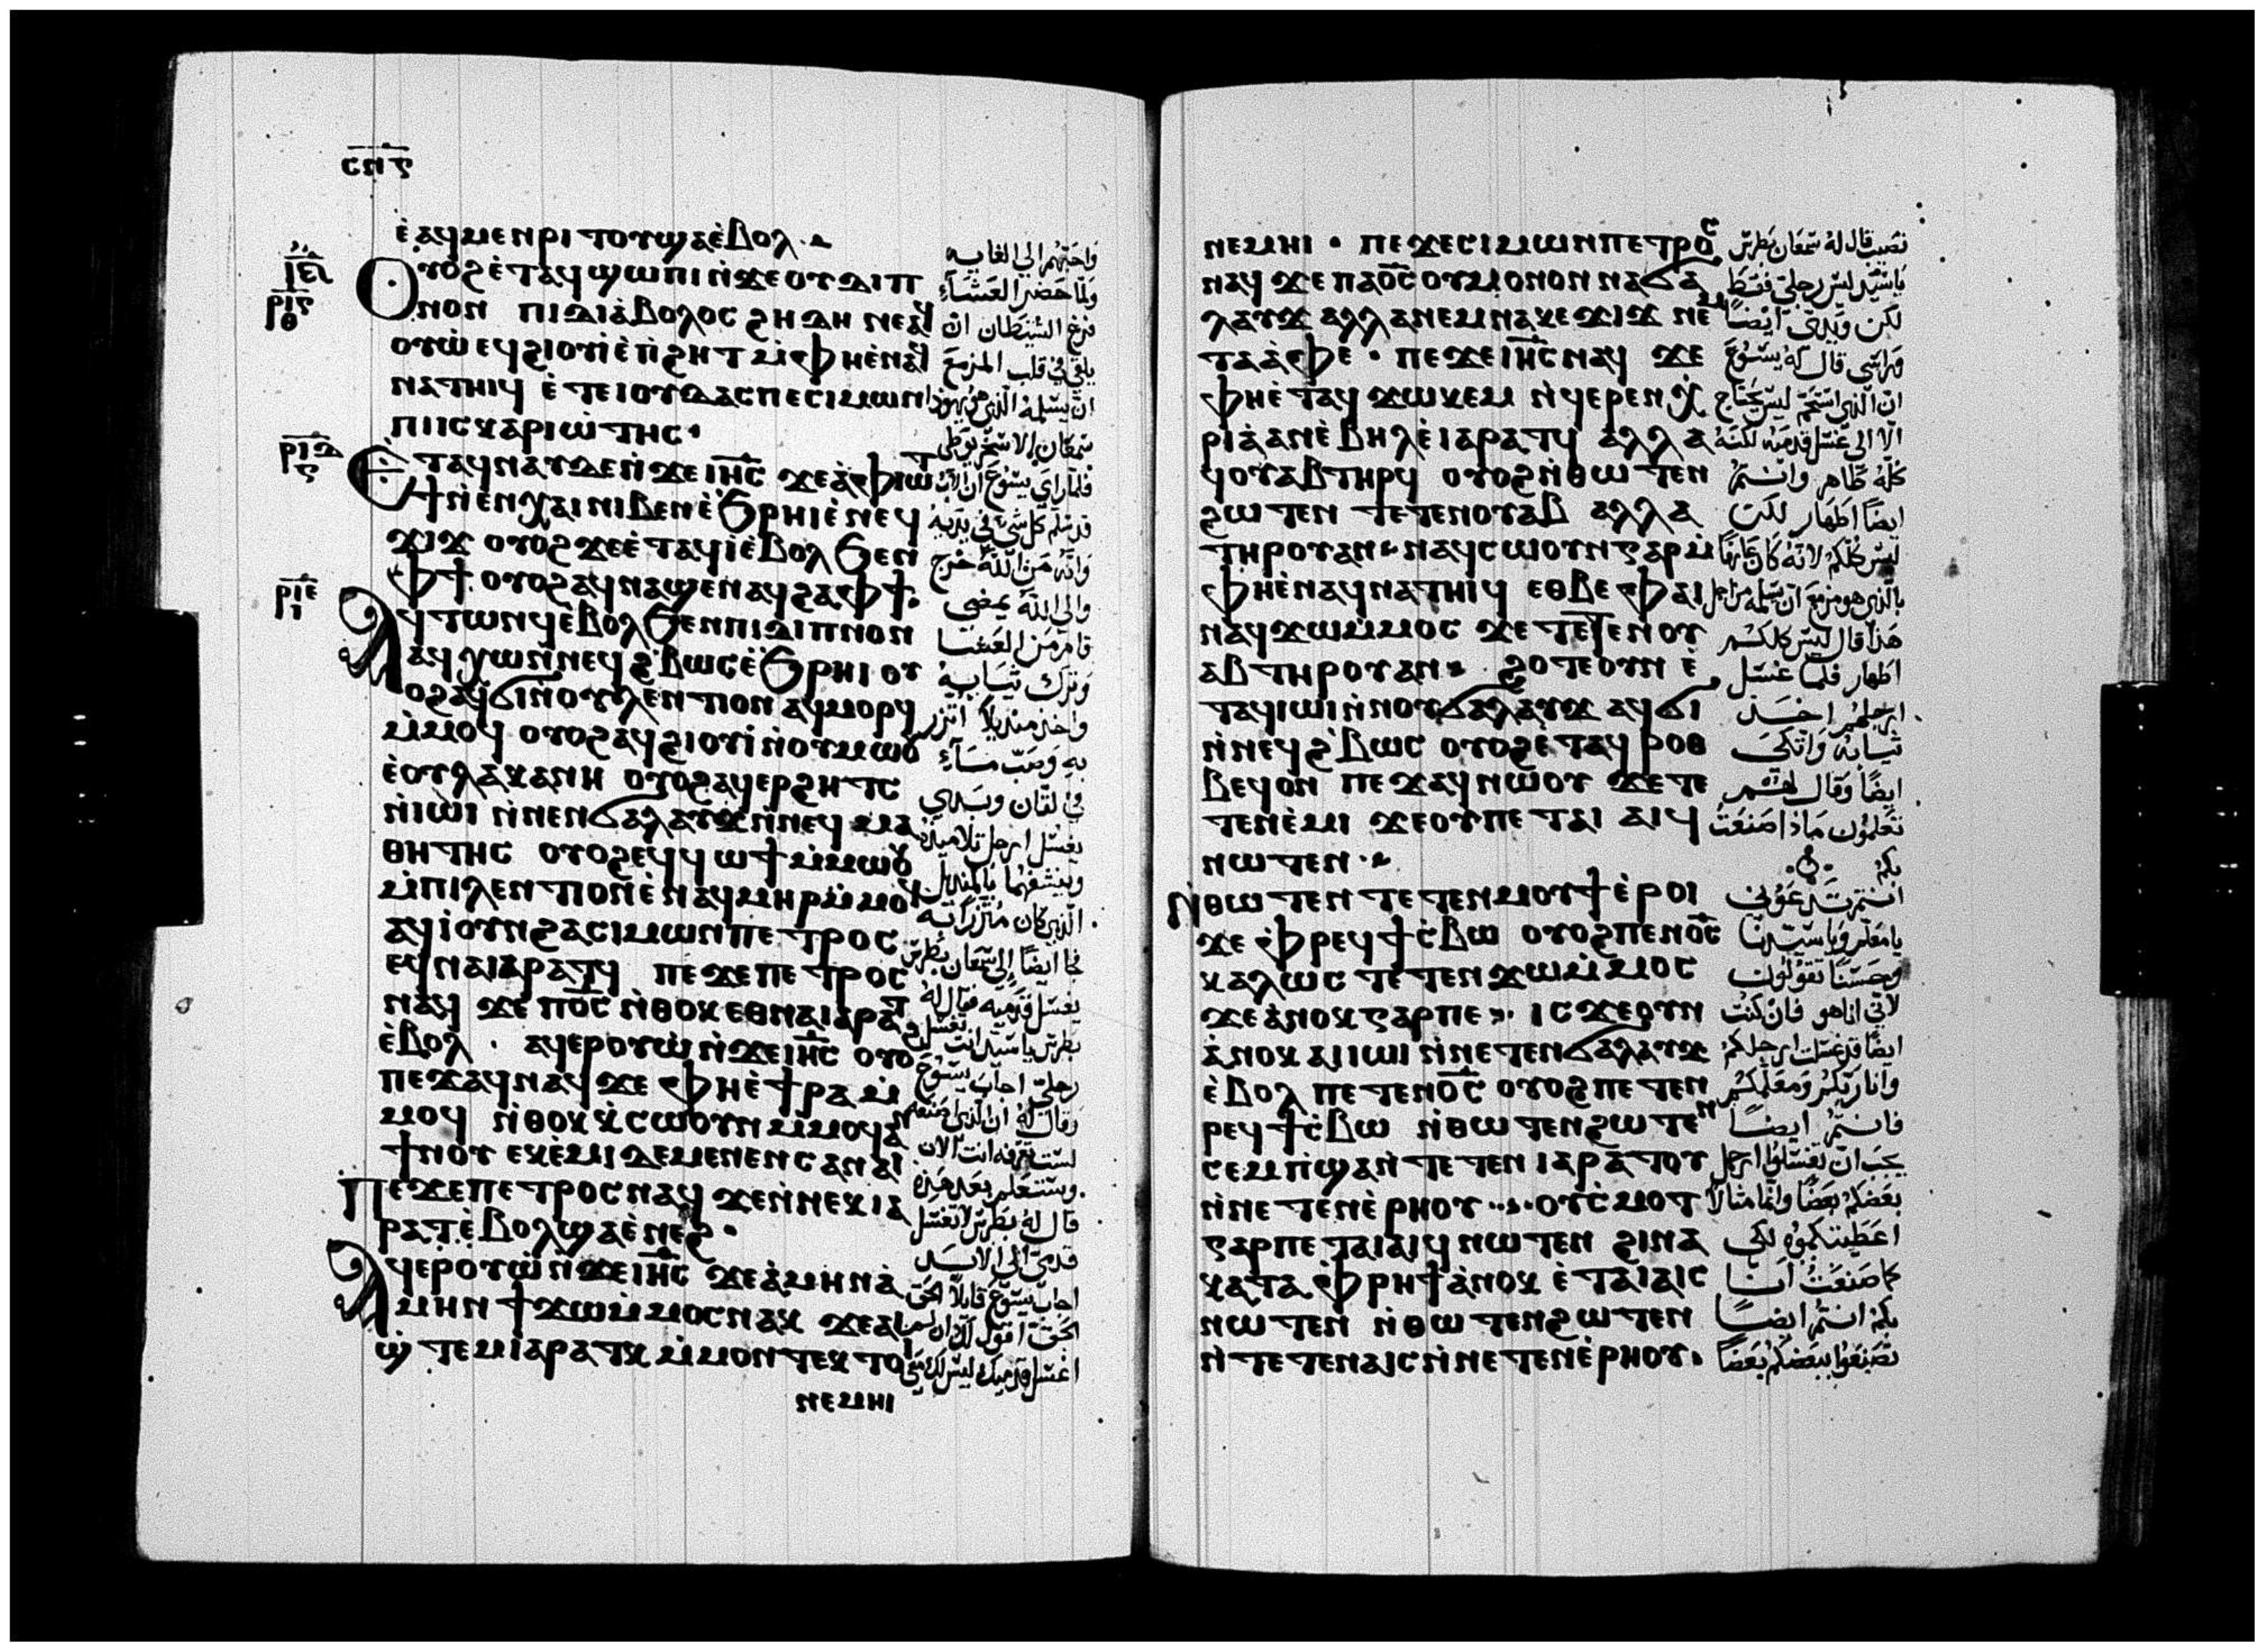 ⲥⲡⲋ
ⲉ̀ⲁϥⲙⲉⲛⲣⲓⲧⲟⲩϣⲁⲉ̀ⲃⲟⲗ
ⲣⲓⲅ
ⲑ
Ⲟⲩⲟϩⲉ̀ⲧⲁϥϣⲱⲡⲓⲛ̀ϫⲉⲟⲩⲇⲓⲡ
ⲛⲟⲛ ⲡⲓⲇⲓⲁ̀ⲃⲟⲗⲟⲥ ϩⲏⲇⲏ ⲛⲉⲁϥ
ⲟⲩⲱ̀ ⲉϥϩⲓⲟⲩⲓ̀ⲉ̀ⲡ̀ϩⲏⲧ ⲙ̀ⲫⲏⲉ̀ⲛⲁϥ
ⲛⲁⲧⲏⲓϥ ⲉ̀ⲧⲉⲓⲟⲩⲇⲁⲥⲡⲉⲥⲓⲙⲱⲛ
ⲡⲓⲓⲥⲕⲁⲣⲓⲱ̀ⲧⲏⲥ·
ⲣⲓⲇ
ⲋ
Ⲉ̀ⲧⲁϥⲛⲁⲩⲇⲉⲛ̀ϫⲉⲓⲏⲥ ϫⲉⲁ̀ⲫⲓⲱⲧ
ϯⲛ̀ⲉⲛⲭⲁⲓⲛⲓⲃⲉⲛⲉ̀ϧⲣⲏⲓⲉ̀ⲛⲉϥ
ϫⲓϫ ⲟⲩⲟϩ ϫⲉⲉ̀ⲧⲁϥⲓ̀ⲉ̀ⲃⲟⲗ ϧⲉⲛ
ⲫϯ ⲟⲩⲟϩⲁϥⲛⲁϣⲉⲛⲁϥϩⲁⲫϯ
ⲣⲓⲉ
ⲓ
Ⲁϥⲧⲱⲛϥⲉ̀ⲃⲟⲗϧⲉⲛⲡⲓⲇⲓⲡⲛⲟⲛ
ⲁϥⲭⲱⲛ̀ⲛⲉϥϩ̀ⲃⲱⲥⲉ̀ϧⲣⲏⲓ ⲟⲩ
ⲟϩⲁϥϭⲓⲛ̀ⲟⲩⲗⲉⲛⲧⲓⲟⲛ ⲁϥⲙⲟⲣϥ
ⲙ̀ⲙⲟϥ ⲟⲩⲟϩⲁϥϩⲓⲟⲩⲓ̀ⲛ̀ⲟⲩⲙⲱⲟⲩ
ⲉ̀ⲟⲩⲗⲁⲕⲁⲛⲏ ⲟⲩⲟϩⲁϥⲉⲣϩⲏⲧⲥ
ⲛ̀ⲓⲱ̀ⲓ ⲛ̀ⲛⲉⲛϭⲁⲗⲁⲩϫⲛ̀ⲛⲉϥ ⲙⲁ
ⲑⲏⲧⲏⲥ ⲟⲩⲟϩⲉϥϥⲱϯⲙ̀ⲙⲱⲟⲩ
ⲙ̀ⲡⲓⲗⲉⲛⲧⲓⲟⲛⲉ̀ⲛⲁϥⲙⲏⲣⲙ̀ⲙⲟϥ
ⲁϥⲓ̀ⲟⲩⲛϩⲁⲥⲓⲙⲱⲛⲡⲉⲧⲣⲟⲥ
ⲉϥⲛⲁⲓⲁⲣⲁⲧϥ ⲡⲉϫⲉⲡⲉⲧⲣⲟⲥ
ⲛⲁϥ ϫⲉ ⲡⲟⲥ ⲛ̀ⲑⲟⲕ ⲉⲑⲛⲁⲓⲁⲣⲁⲧ
ⲉ̀ⲃⲟⲗ · ⲁϥⲉⲣⲟⲩⲱ̀ ⲛ̀ϫⲉⲓⲏⲥ ⲟⲩⲟ
ⲡⲉϫⲁϥⲛⲁϥ ϫⲉ ⲫⲏⲉ̀ϯⲣⲁ ⲙ̀
ⲙⲟϥ ⲛ̀ⲑⲟⲕ ⲕ̀ⲥⲱⲟⲩⲛ ⲙ̀ⲙⲟϥⲁⲛ
ϯⲛⲟⲩ ⲉⲕⲉ̀ⲙⲓ ⲇⲉⲙⲉⲛⲉⲛⲥⲁⲛⲁⲓ
Ⲡⲉϫⲉⲡⲉⲧⲣⲟⲥⲛⲁϥ ϫⲉⲛ̀ⲛⲉⲕⲓⲁ
ⲣⲁⲧⲉ̀ⲃⲟⲗϣⲁⲉ̀ⲛⲉϩ·
Ⲁϥⲉⲣⲟⲩⲱ̀ⲛ̀ϫⲉⲓⲏⲥ ϫⲉⲁ̀ⲙⲏⲛⲁ̀
ⲙⲏⲛ ϯϫⲱⲙ̀ⲙⲟⲥⲛⲁⲕ ϫⲉⲁⲓ
ϣ̀ⲧⲉⲙⲓⲁⲣⲁⲧⲕ ⲙ̀ⲙⲟⲛⲧⲉⲕ ⲧⲟⲓ
ⲛⲉⲙⲏⲓ
واحبهم الي الغايه
ولما حضر العشاء
فرغ الشيطان ان
يلقي في قلب المزمع
ان يسلمه الذي هو يهودا
سمعان الاسخريوطي
فلما راي يسوع ان الاب
قد سلم كل شي في يديه
وانه من الله خرج
والي الله يمضي
قام من العشا
وترك ثيابه
واخذ منديلا اتزر
به وصب ماء
في لقان وبدي
يغسل ارجل تلاميذه
وينشفهما بالمنديل
الذي كان متزرا به
فجا ايضا الي سمعان بطرس
يغسل قدميه فقال له
بطرس يا سيد انت تغسل
رجلي اجاب يسوع
وقال له ان الذي اصنعه
لست تعرفه انت الان
وستعلم بعد هذه
قال له بطرس لا تغسل
قدمي الي الابد
اجاب يسوع قايلا الحق
الحق اقول لك ان لم
اغسل قدميك ليس لك معي
ⲛⲉⲙⲏⲓ · ⲡⲉϫⲉⲥⲓⲙⲱⲛⲡⲉⲧⲣⲟⲥ
ⲛⲁϥ ϫⲉ ⲡⲁⲟⲥ ⲟⲩⲙⲟⲛⲟⲛ ⲛⲁϭⲁ
ⲗⲁⲩϫ ⲁⲗⲗⲁⲛⲉⲙⲛⲁⲕⲉϫⲓϫ ⲛⲉⲙ
ⲧⲁⲁ̀ⲫⲉ · ⲡⲉϫⲉⲓⲏⲥⲛⲁϥ ϫⲉ
ⲫⲏⲉ̀ⲧⲁϥ ϫⲱⲕⲉⲙ ⲛ̀ϥⲉⲣⲉⲛⲭ
ⲣⲓⲁ̀ⲁⲛⲉ̀ⲃⲏⲗⲉ̀ⲓⲁⲣⲁⲧϥ ⲁⲗⲗⲁ
ϥⲟⲩⲁⲃⲧⲏⲣϥ ⲟⲩⲟϩⲛ̀ⲑⲱⲧⲉⲛ
ϩⲱⲧⲉⲛ ⲧⲉⲧⲉⲛⲟⲩⲁⲃ ⲁⲗⲗⲁ
ⲧⲏⲣⲟⲩⲁⲛ ⲛⲁϥⲥⲱⲟⲩⲛⲅⲁⲣⲙ̀
ⲫⲏⲉ̀ⲛⲁϥⲛⲁⲧⲏⲓϥ ⲉⲑⲃⲉⲫⲁⲓ
ⲛⲁϥϫⲱⲙ̀ⲙⲟⲥ ϫⲉⲧⲉⲧⲉⲛⲟⲩ
ⲁⲃⲧⲏⲣⲟⲩⲁⲛ ϩⲟⲧⲉⲟⲩⲛ ⲉ̀
ⲧⲁϥⲓⲱⲓⲛ̀ⲛⲟⲩϭⲁⲗⲁⲩϫ ⲁϥϭⲓ
ⲛ̀ⲛⲉϥϩ̀ⲃⲱⲥ ⲟⲩⲟϩⲉ̀ⲧⲁϥⲣⲟⲑ
ⲃⲉϥⲟⲛ ⲡⲉϫⲁϥⲛⲱⲟⲩ ϫⲉⲧⲉ
ⲧⲉⲛⲉ̀ⲙⲓ ϫⲉⲟⲩⲡⲉⲧⲁⲓ ⲁⲓϥ
ⲛⲱⲧⲉⲛ
Ⲛ̀ⲑⲱⲧⲉⲛ ⲧⲉⲧⲉⲛⲙⲟⲩϯⲉ̀ⲣⲟⲓ
ϫⲉ ⲫ̀ⲣⲉϥϯⲥ̀ⲃⲱ ⲟⲩⲟϩⲡⲉⲛⲟⲥ
ⲕⲁⲗⲱⲥ ⲧⲉⲧⲉⲛϫⲱⲙ̀ⲙⲟⲥ
ϫⲉⲁ̀ⲛⲟⲕⲅⲁⲣⲡⲉ ⲓⲥϫⲉⲟⲩⲛ
ⲁ̀ⲛⲟⲕ ⲁⲓⲓⲱⲓ ⲛ̀ⲛⲉⲧⲉⲛϭⲁⲗⲁⲩϫ
ⲉ̀ⲃⲟⲗ ⲡⲉⲧⲉⲛⲟⲥ ⲟⲩⲟϩⲡⲉⲧⲉⲛ
ⲣⲉϥϯⲥ̀ⲃⲱ ⲛ̀ⲑⲱⲧⲉⲛϩⲱⲧⲉⲛ
ⲥⲉⲙⲡ̀ϣⲁⲛ̀ⲧⲉⲧⲉⲛⲓⲁⲣⲁⲧⲟⲩ
ⲛ̀ⲛⲉⲧⲉⲛⲉ̀ⲣⲏⲟⲩ ⲟⲩⲥ̀ⲙⲟⲧ
ⲅⲁⲣⲡⲉⲧⲁⲓⲁⲓϥ ⲛⲱⲧⲉⲛ ϩⲓⲛⲁ
ⲕⲁⲧⲁ ⲫ̀ⲣⲏϯⲁ̀ⲛⲟⲕ ⲉ̀ⲧⲁⲓⲁⲓⲥ
ⲛⲱⲧⲉⲛ ⲛ̀ⲑⲱⲧⲉⲛϩⲱⲧⲉⲛ
ⲛ̀ⲧⲉⲧⲉⲛⲁⲓⲥⲛ̀ⲛⲉⲧⲉⲛⲉ̀ⲣⲏⲟⲩ·
نصيب قال له سمعان بطرس
يا سيد ليس رجلي فقط
لكن ويدي ايضا
وراسي قال له يسوع
ان الذي استحم ليس يحتاج
الا الي غسل قدميه لكنه
كله طاهر وانتم
ايضا اطهار لكن
ليس كلكم لانه كان عارفا
بالذي هو مزمع ان يسلمه من اجل
هذا قال ليس كلكم
اطهار فلما غسل
ارجلهم اخذ
ثيابه واتكي
ايضا وقال لهم
تعلمون ماذا صنعت
بكم
انتم تدعوني
يا معلم ويا سيدنا
وحسنا تقولون
لاني انا هو فان كنت
ايضا قد غسلت ارجلكم
وانا ربكم ومعلمكم
فانتم ايضا
يجب ان تغسلوا ارجل
بعضكم بعضا وانما مثالا
اعطيتكموه لكي
كما صنعت انا
بكم انتم ايضا
تصنعوا ببعضكم بعضا